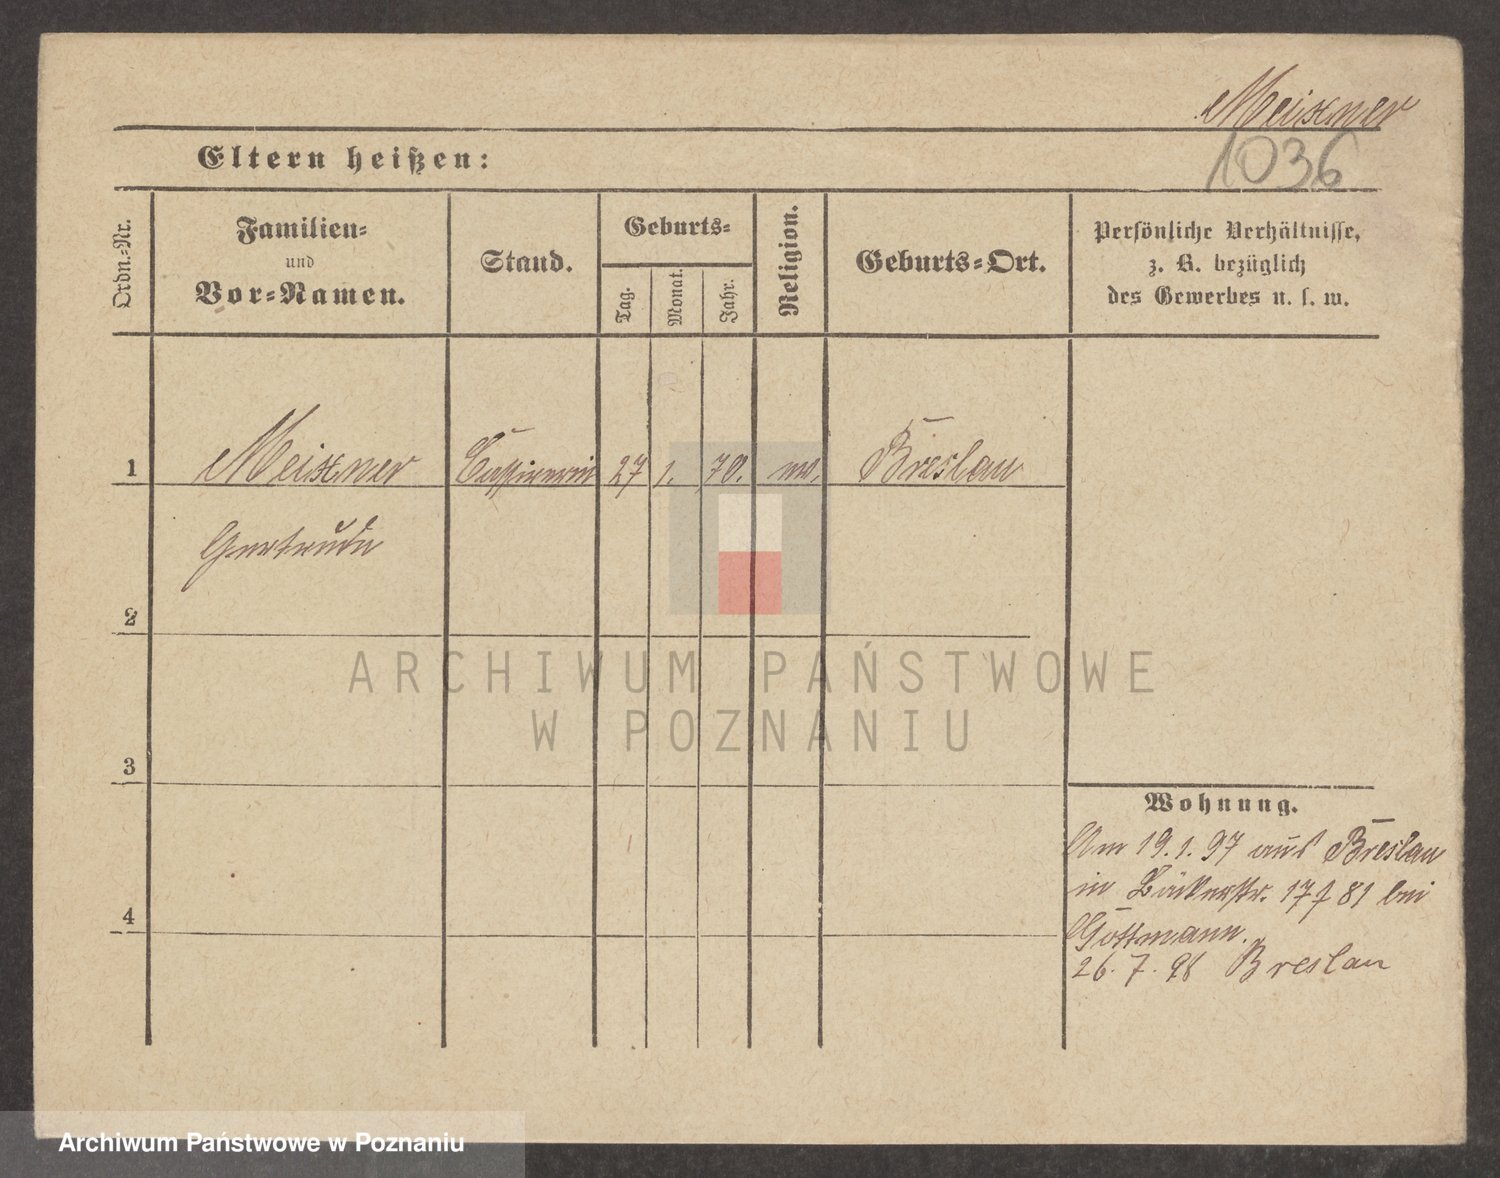 Meixner
1036
Eltern heißen:
Ordn.-Nr.
Familien-
und
Vor-Namen.
Stand.
Geburts-
Tag.
Monat.
Jahr.
Religion.
Geburts-Ort.
Persönliche Verhältnisse,
z. B. bezüglich
des Gewerbes u. s. w.
1 Meixner Cassirerin 27 1. 70. Breslau
Gertrude
2
3
4
Wohnung.
Am 19.1.97 aus Breslau
in Bäckerstr. 17 81 bei
Gottmann.
26.7.98 Breslau
ARCHIWUM PAŃSTWOWE
W POZNANIU
Archiwum Państwowe w Poznaniu